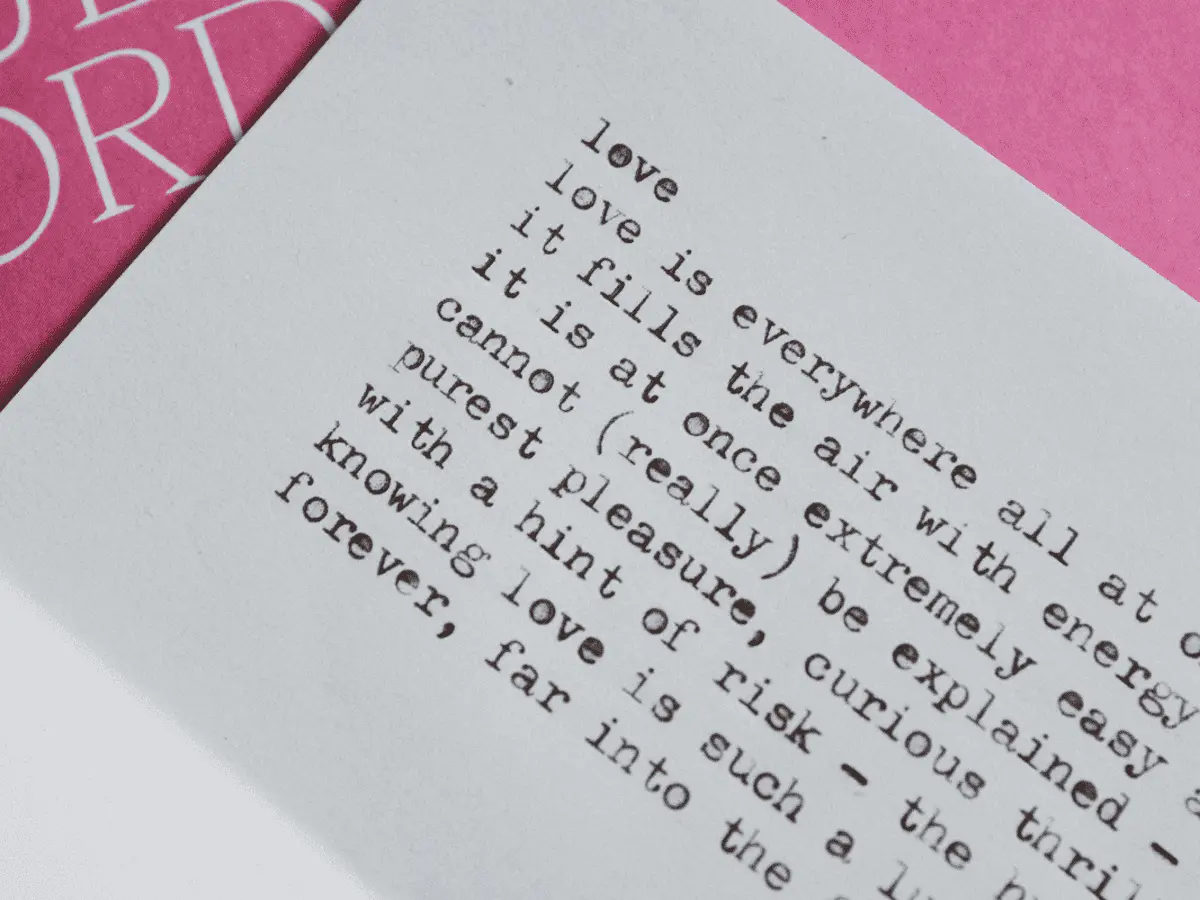 ORD
love
love is everywhere all at
it fills the air with energy
it is at once extremely easy
cannot (really) be explained -
purest pleasure, curious
with a hint of risk - the
knowing love is such a
forever, far into the